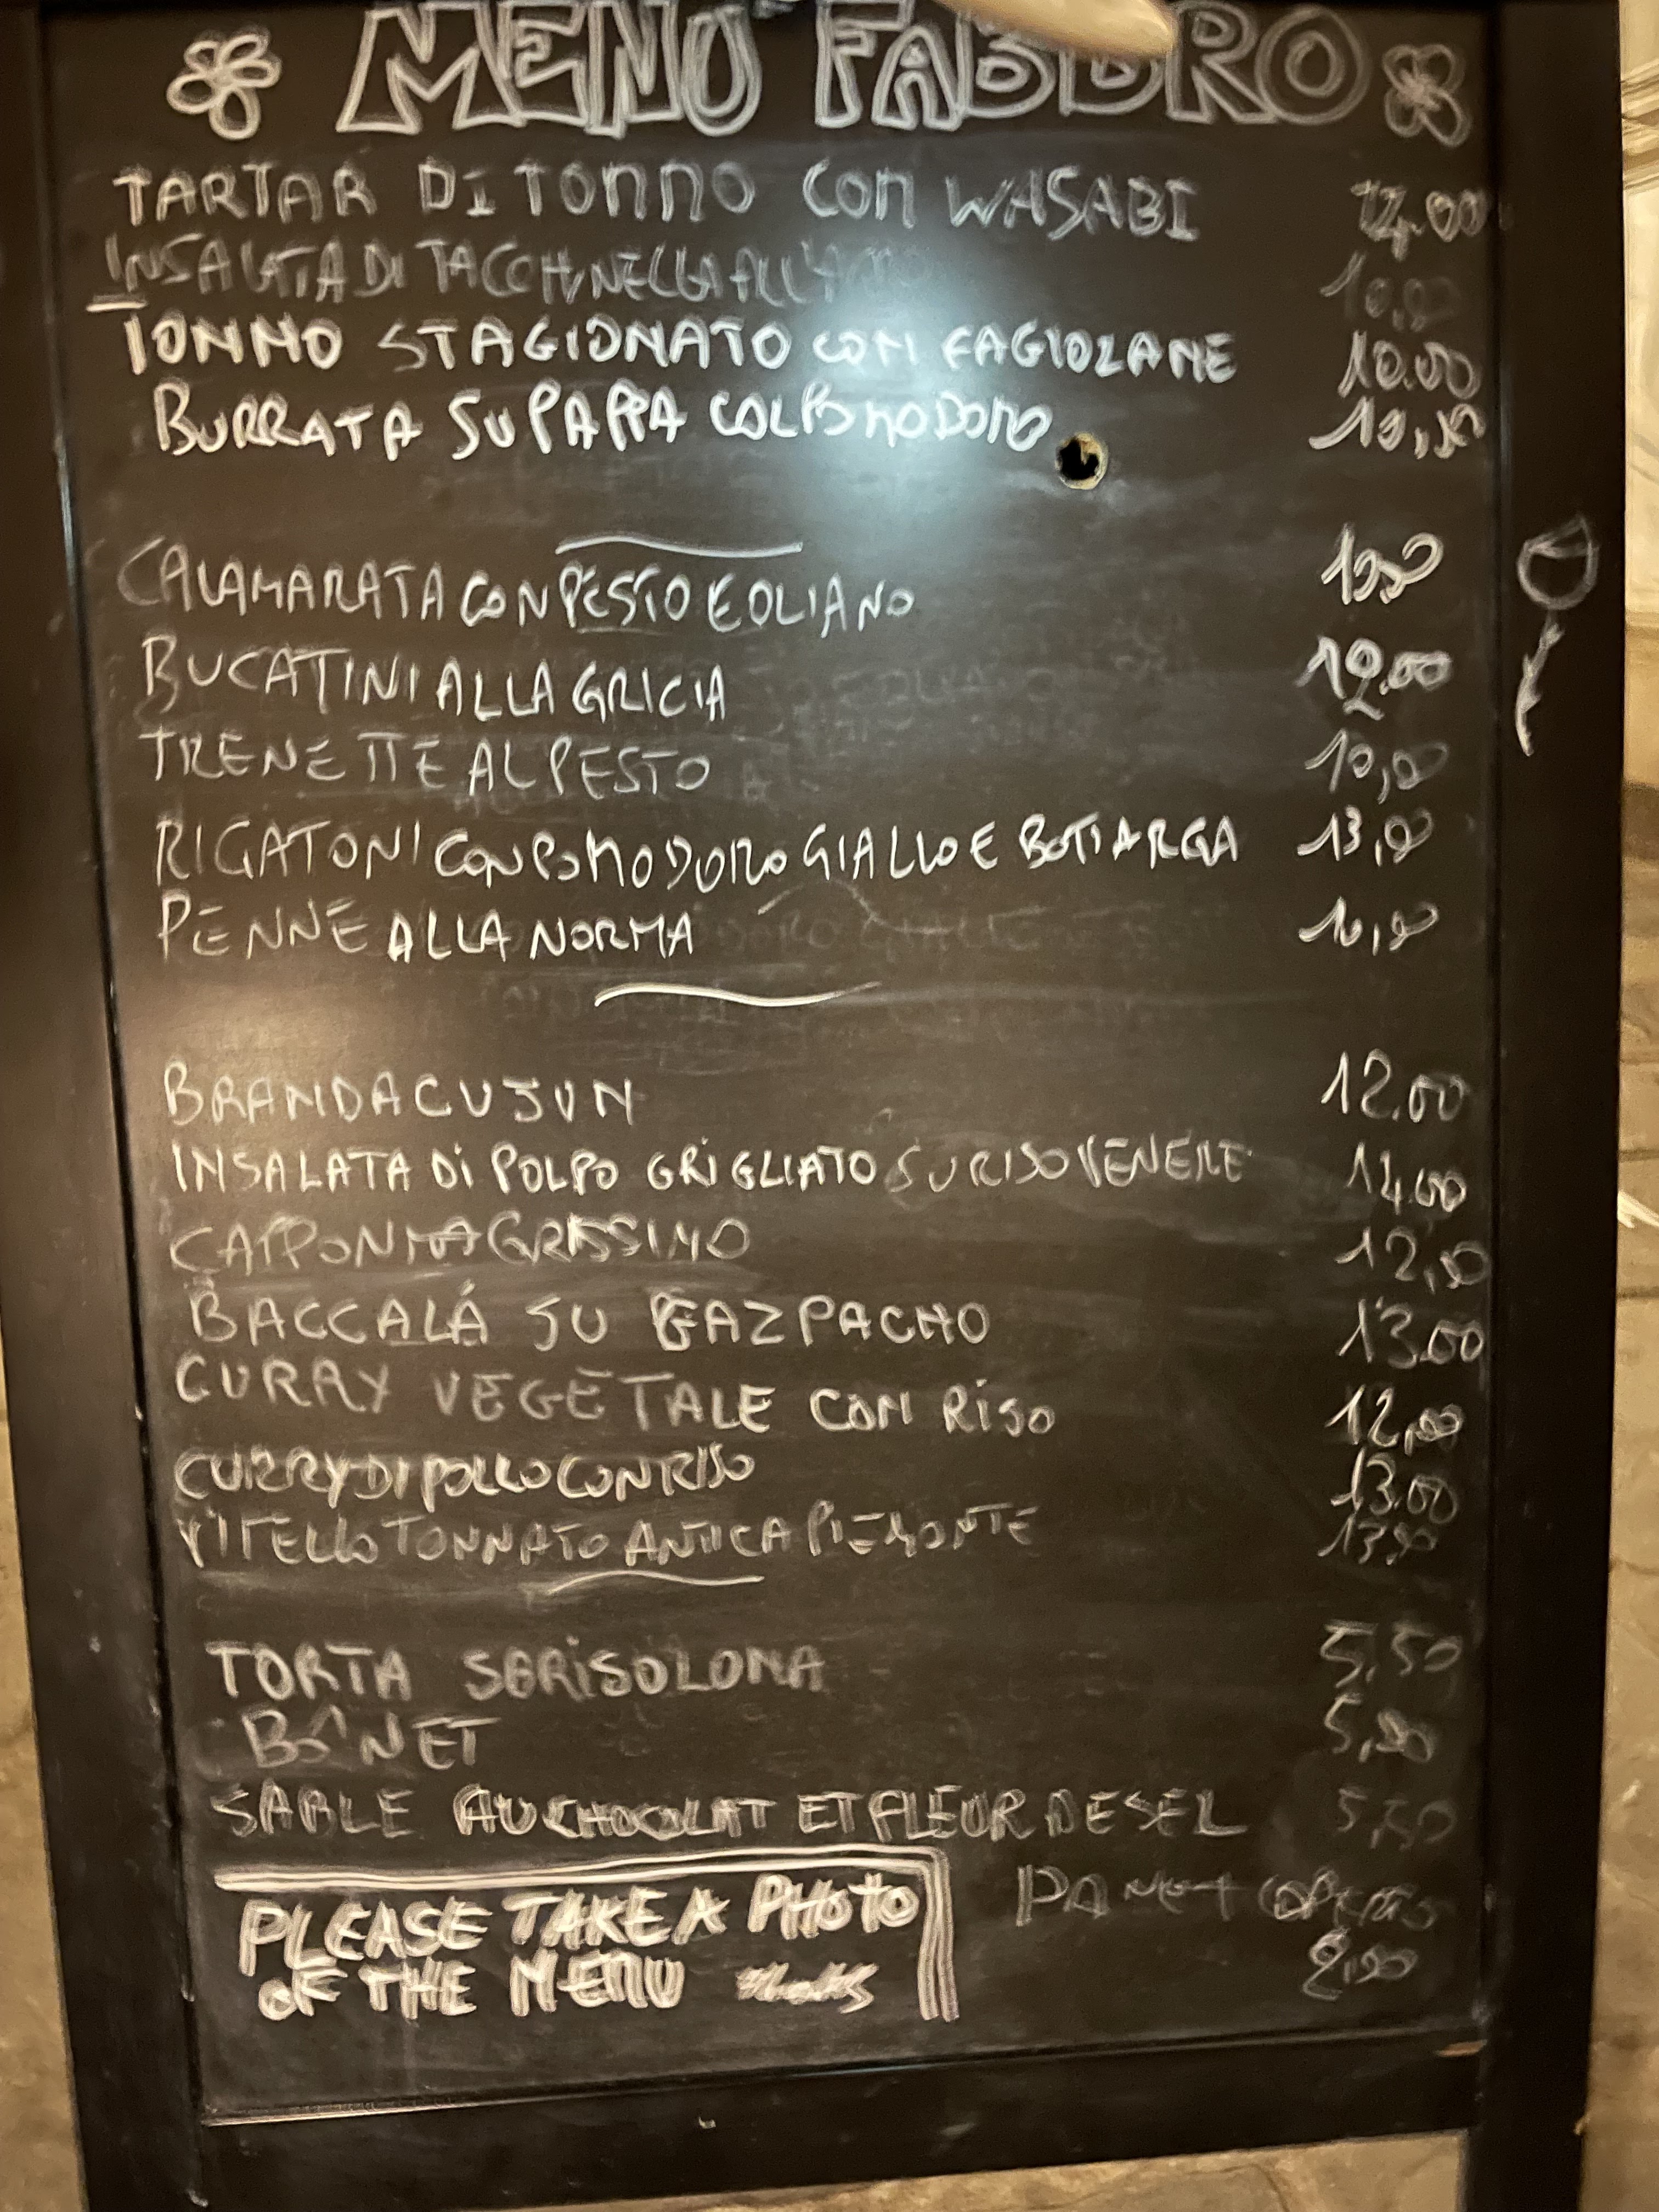 MENU FABBRO
TARTAR DI TONNO CON WASABI
INSALATA DI TACCHINELLA ALL'
TONNO STAGIONATO CON FAGIOLANE 10.00
BURRATA SU PAPPA COL POMODORO
CALAMARATA CON PESTO EOLIANO
BUCATINI ALLA GRICIA
TRENETTE AL PESTO
RIGATONI CON POMODORO GIALLO E BOTTARGA
PENNE ALLA NORMA
BRANDACUJUN 12.00
INSALATA DI POLPO GRIGLIATO SU RISO VENERE 14.00
CAPPON MAGRISSIMO
BACCALÁ SU GAZPACHO 13.00
CURRY VEGETALE CON RISO 12,00
CURRY DI POLLO CON RISO 13.00
VITELLO TONNATO ANTICA PIEMONTE
TORTA SBRISOLONA 5,50
BÔNET
SABLE AU CHOCOLAT ET FLEUR DE SEL 5,50
PLEASE TAKE A PHOTO
OF THE MENU
PANE + COPERTO